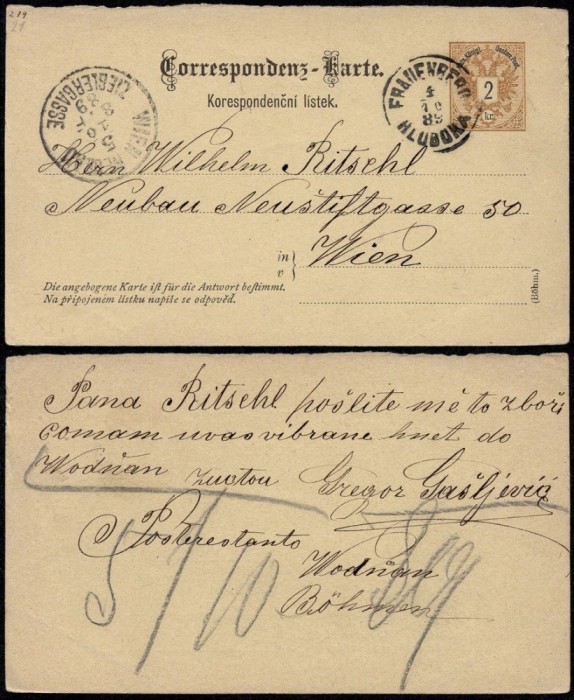 219
21
Correspondenz-Karte.
Korespondenční lístek.
FRAUENBERG
4
10
89
HLUBOKA
2
kr.
WIEN
ZIEGLERGASSE
Herrn Wilhelm Ritschl
Neubau Neustiftgasse 50
in
v
Wien
Die angebogene Karte ist für die Antwort bestimmt.
Na připojeném lístku napíše se odpověd.
(Böhm.)
Pana Ritschl pošlite mě to zboži
comam uvas vibrane hnet do
Wodňan zuctou Gregor Gašljević
Postrestanto
Wodňan
Böhmen
5/10 89